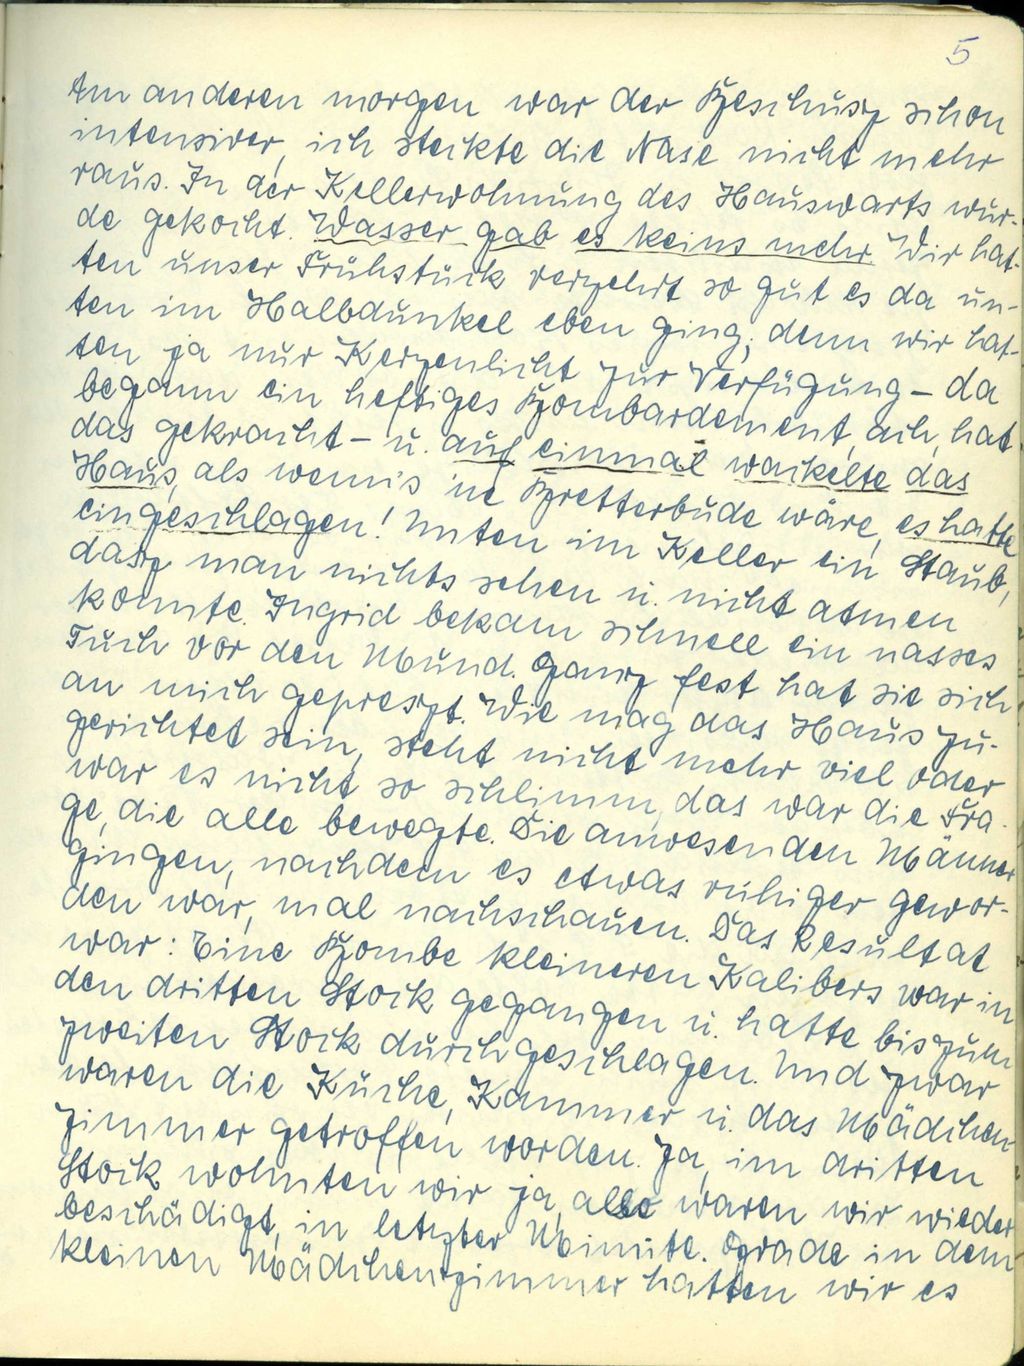 5
Am anderen morgen war der Beschusz schon
intensiver, ich steckte die Nase nicht mehr
raus. In der Kellerwohnung des Hauswarts wur-
de gekocht. Wasser gab es keins mehr. Wir hat-
ten unser Frühstück verzehrt so gut es da un-
ten im Halbdunkel eben ging, denn wir hat-
ten ja nur Kerzenlicht zur Verfügung – da
begann ein heftiges Bombardement, ach, hat
das gekracht – u. auf einmal wackelte das
Haus, als wenn's 'ne Bretterbude wäre, es hatte
eingeschlagen! Unten im Keller ein Staub,
dasz man nichts sehen u. nicht atmen
konnte. Ingrid bekam schnell ein nasses
Tuch vor den Mund. Ganz fest hat sie sich
an mich gepreszt. Wie mag das Haus zu-
gerichtet sein, steht nicht mehr viel oder
war es nicht so schlimm, das war die Fra-
ge, die alle bewegte. Die anwesenden Männer
gingen, nachdem es etwas ruhiger gewor-
den war, mal nachschauen. Das Resultat
war: Eine Bombe kleineren Kalibers war in
den dritten Stock gegangen u. hatte bis zum
zweiten Stock durchgeschlagen. Und zwar
waren die Küche, Kammer u. das Mädchen-
zimmer getroffen worden. Ja, im dritten
Stock wohnten wir ja, also waren wir wieder
beschädigt, in letzter Minute. Grade in dem
kleinen Mädchenzimmer hatten wir es